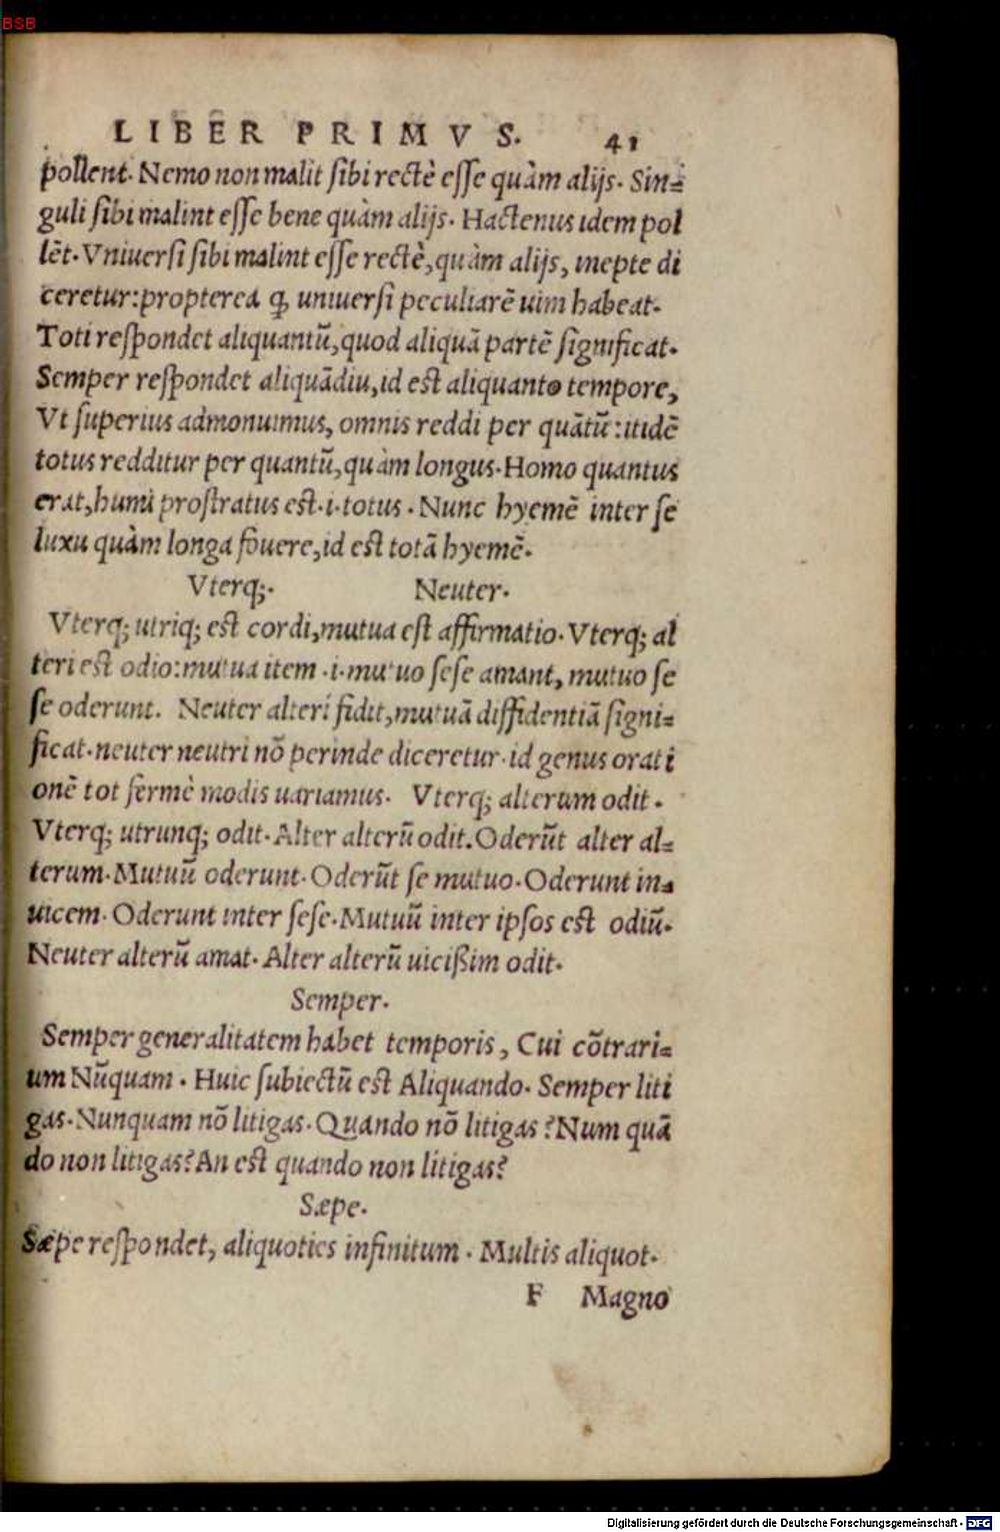 BSB
LIBER PRIMVS. 41
pollent. Nemo non malit sibi rectè esse quàm alijs. Sin=
guli sibi malint esse bene quàm alijs. Hactenus idem pol
lẽt. Vniuersi sibi malint esse rectè, quàm alijs, inepte di
ceretur: propterea ꝙ uniuersi peculiarẽ uim habeat.
Toti respondet aliquantũ, quod aliquã partẽ significat.
Semper respondet aliquãdiu, id est aliquanto tempore,
Vt superius admonuimus, omnis reddi per quãtũ: itidẽ
totus redditur per quantũ, quàm longus. Homo quantus
erat, humi prostratus est .i. totus. Nunc hyemẽ inter se
luxu quàm longa fouere, id est totã hyemẽ.
Vterq;. Neuter.
Vterq; utriq; est cordi, mutua est affirmatio. Vterq; al
teri est odio: mutua item .i. mutuo sese amant, mutuo se
se oderunt. Neuter alteri fidit, mutuã diffidentiã signi=
ficat. neuter neutri nõ perinde diceretur. id genus orati
onẽ tot fermè modis uariamus. Vterq; alterum odit.
Vterq; utrunq; odit. Alter alterũ odit. Oderũt alter al=
terum. Mutuũ oderunt. Oderũt se mutuo. Oderunt in=
uicem. Oderunt inter sese. Mutuũ inter ipsos est odiũ.
Neuter alterũ amat. Alter alterũ uicißim odit.
Semper.
Semper generalitatem habet temporis, Cui cõtrari=
um Nũquam. Huic subiectũ est Aliquando. Semper liti
gas. Nunquam nõ litigas. Quando nõ litigas? Num quã
do non litigas? An est quando non litigas?
Sæpe.
Sæpe respondet, aliquoties infinitum. Multis aliquot.
F Magno
Digitalisierung gefördert durch die Deutsche Forschungsgemeinschaft - DFG